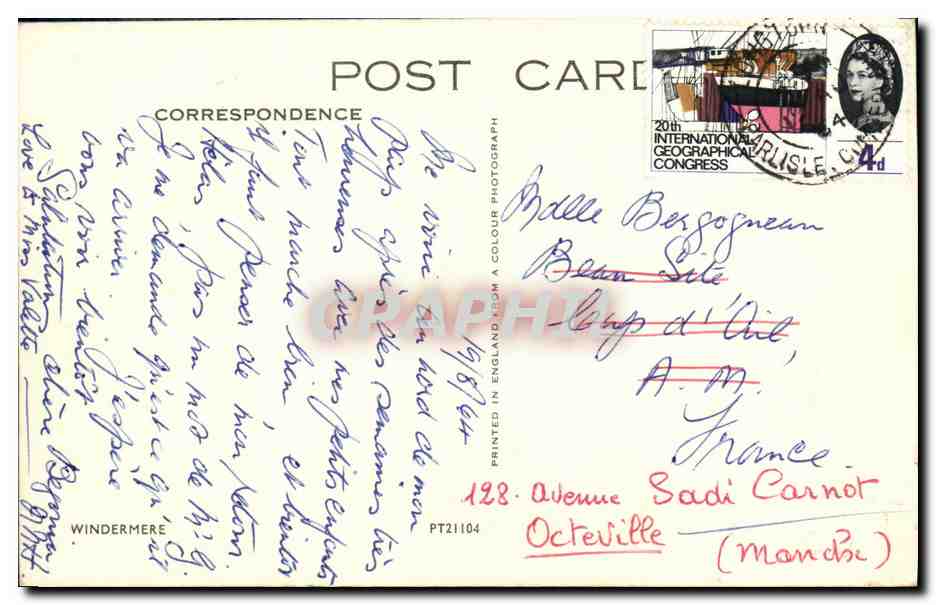 POST CARD
CORRESPONDENCE
19/8/64
Me voici au nord de mon
Pays après des semaines très
heureuses avec mes petits enfants
Tout marche bien et bientôt
il faut penser de mon retour
Hélas! pas un mot de M.G.
Je me demande qu'est ce qu'il
va arriver J'espère
vous voir bientôt
Salutation chère
Love to Miss Valette
PRINTED IN ENGLAND FROM A COLOUR PHOTOGRAPH
WINDERMERE
PT21104
20th
INTERNATIONAL
GEOGRAPHICAL
CONGRESS
4d
CARLISLE
Mdlle Bergogneau
Beau Site
Loup d'Oil
A. M.
France
128. Avenue Sadi Carnot
Octeville
(Manche)
CPAPHIL